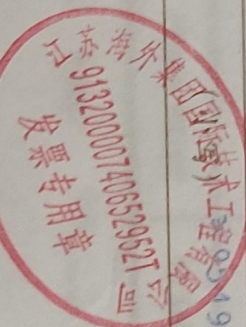 江苏海外集团国际技术工程有限公司
91320000740652952T
发票专用章